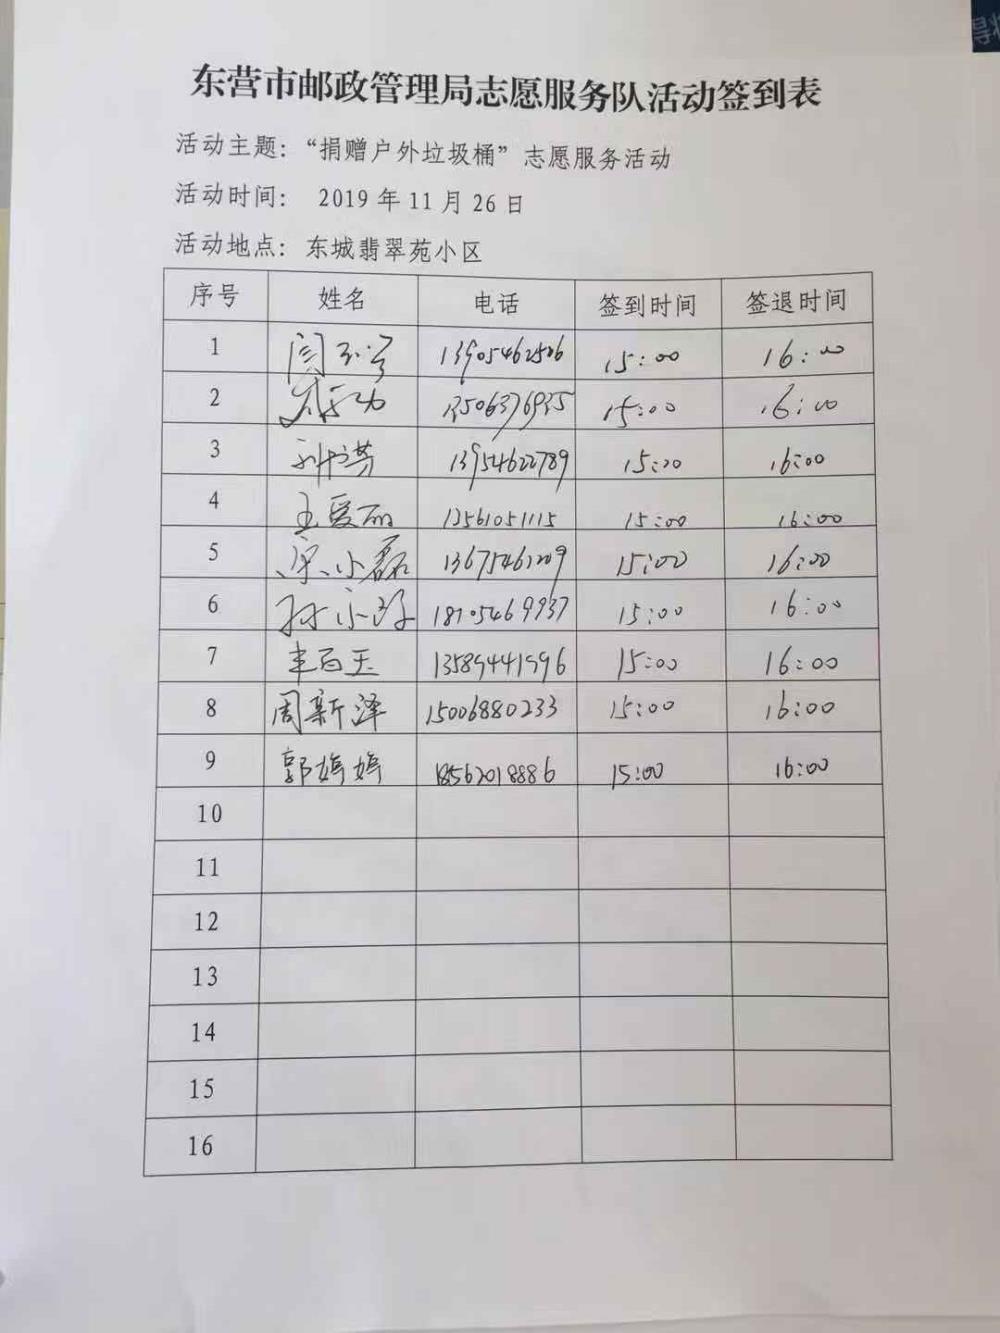 东营市邮政管理局志愿服务队活动签到表
活动主题：“捐赠户外垃圾桶”志愿服务活动
活动时间： 2019 年 11 月 26 日
活动地点：东城翡翠苑小区
序号 姓名 电话 签到时间 签退时间
1 13905462506 15:00 16:00
2 13506376935 15:00 16:00
3 13954622789 15:00 16:00
4 王爱丽 13561051115 15:00 16:00
5 宋小磊 13675461209 15:00 16:00
6 孙小 18105469937 15:00 16:00
7 丰百玉 13589441996 15:00 16:00
8 周新泽 15006880233 15:00 16:00
9 郭婷婷 18562018886 15:00 16:00
10
11
12
13
14
15
16